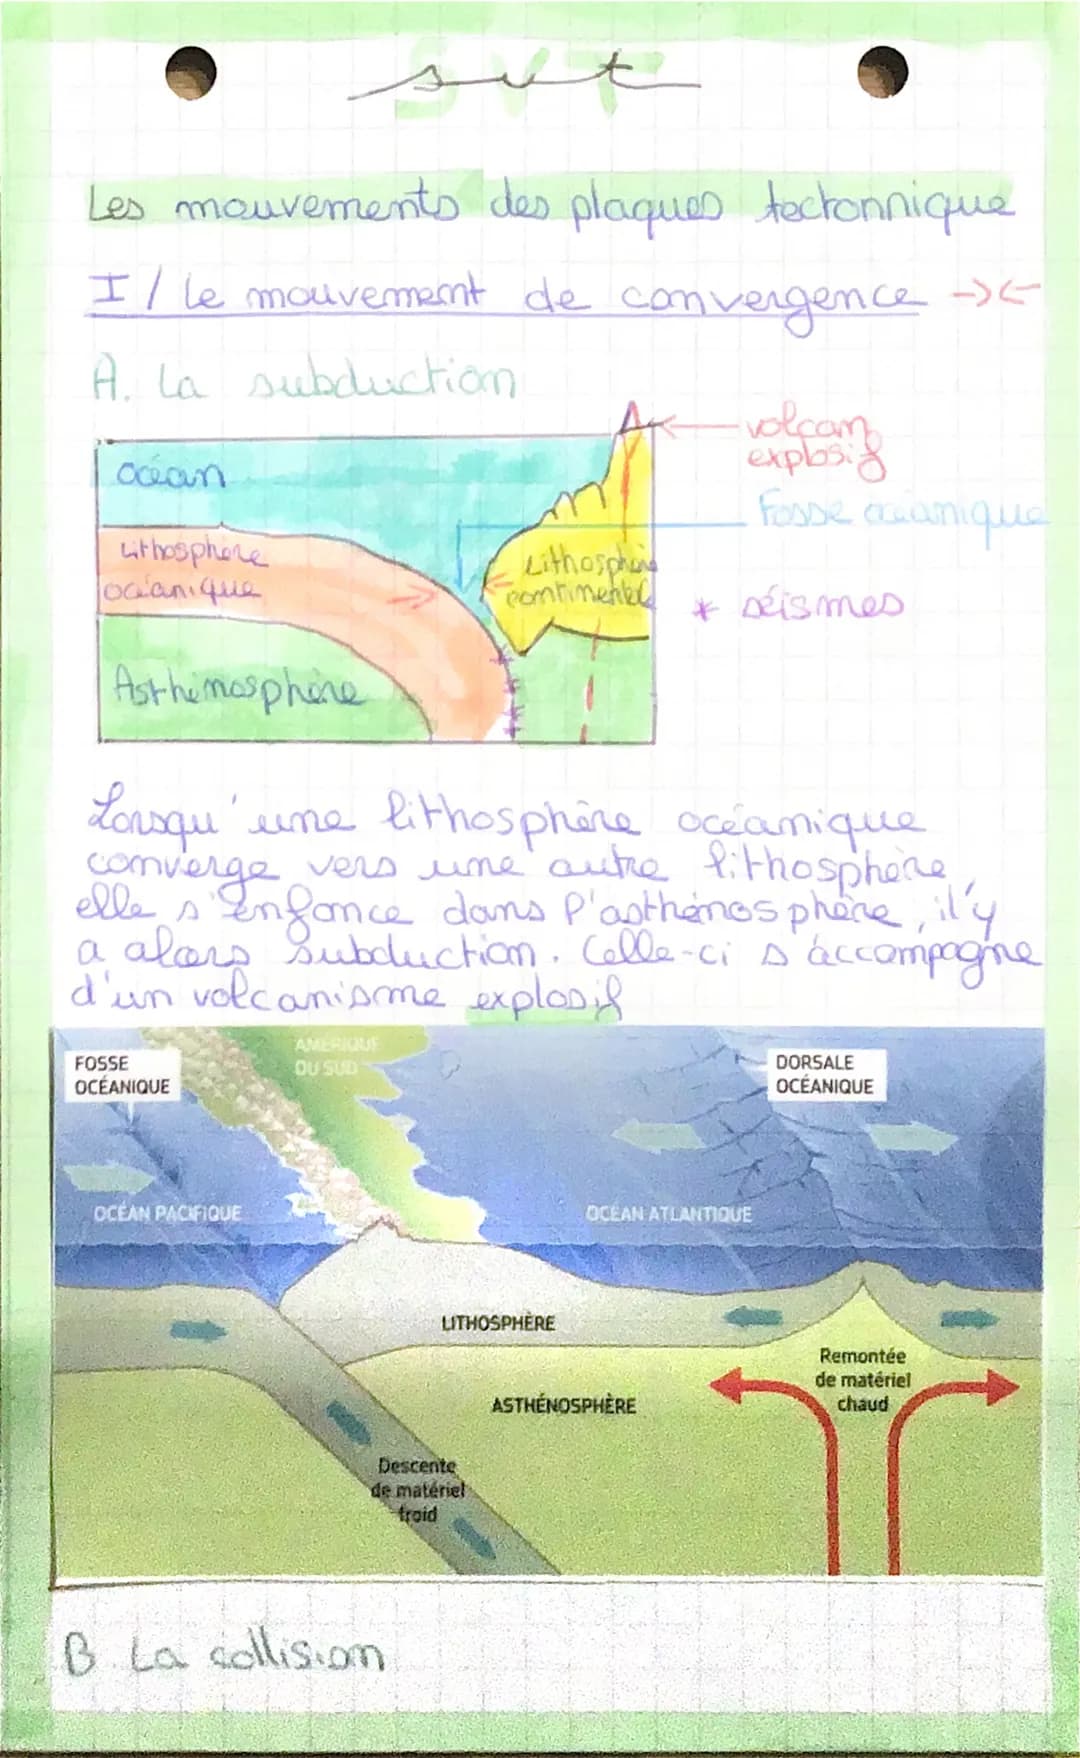 SVT
svt
Les mouvements des plaques tectonnique
I / Le mouvement de convergence →←
A. La subduction
volcan
explosif
océan
Fosse océanique
Lithosphère
océanique
Lithosphère
continentale
* séismes
Asthénosphère
Lorsqu'une lithosphère océanique
converge vers une autre lithosphère,
elle s'enfonce dans l'asthénosphère, il y
a alors subduction. Celle-ci s'accompagne
d'un volcanisme explosif
FOSSE
OCÉANIQUE
AMÉRIQUE
DU SUD
DORSALE
OCÉANIQUE
OCÉAN PACIFIQUE
OCÉAN ATLANTIQUE
LITHOSPHÈRE
Remontée
de matériel
chaud
ASTHÉNOSPHÈRE
Descente
de matériel
froid
B. La collision